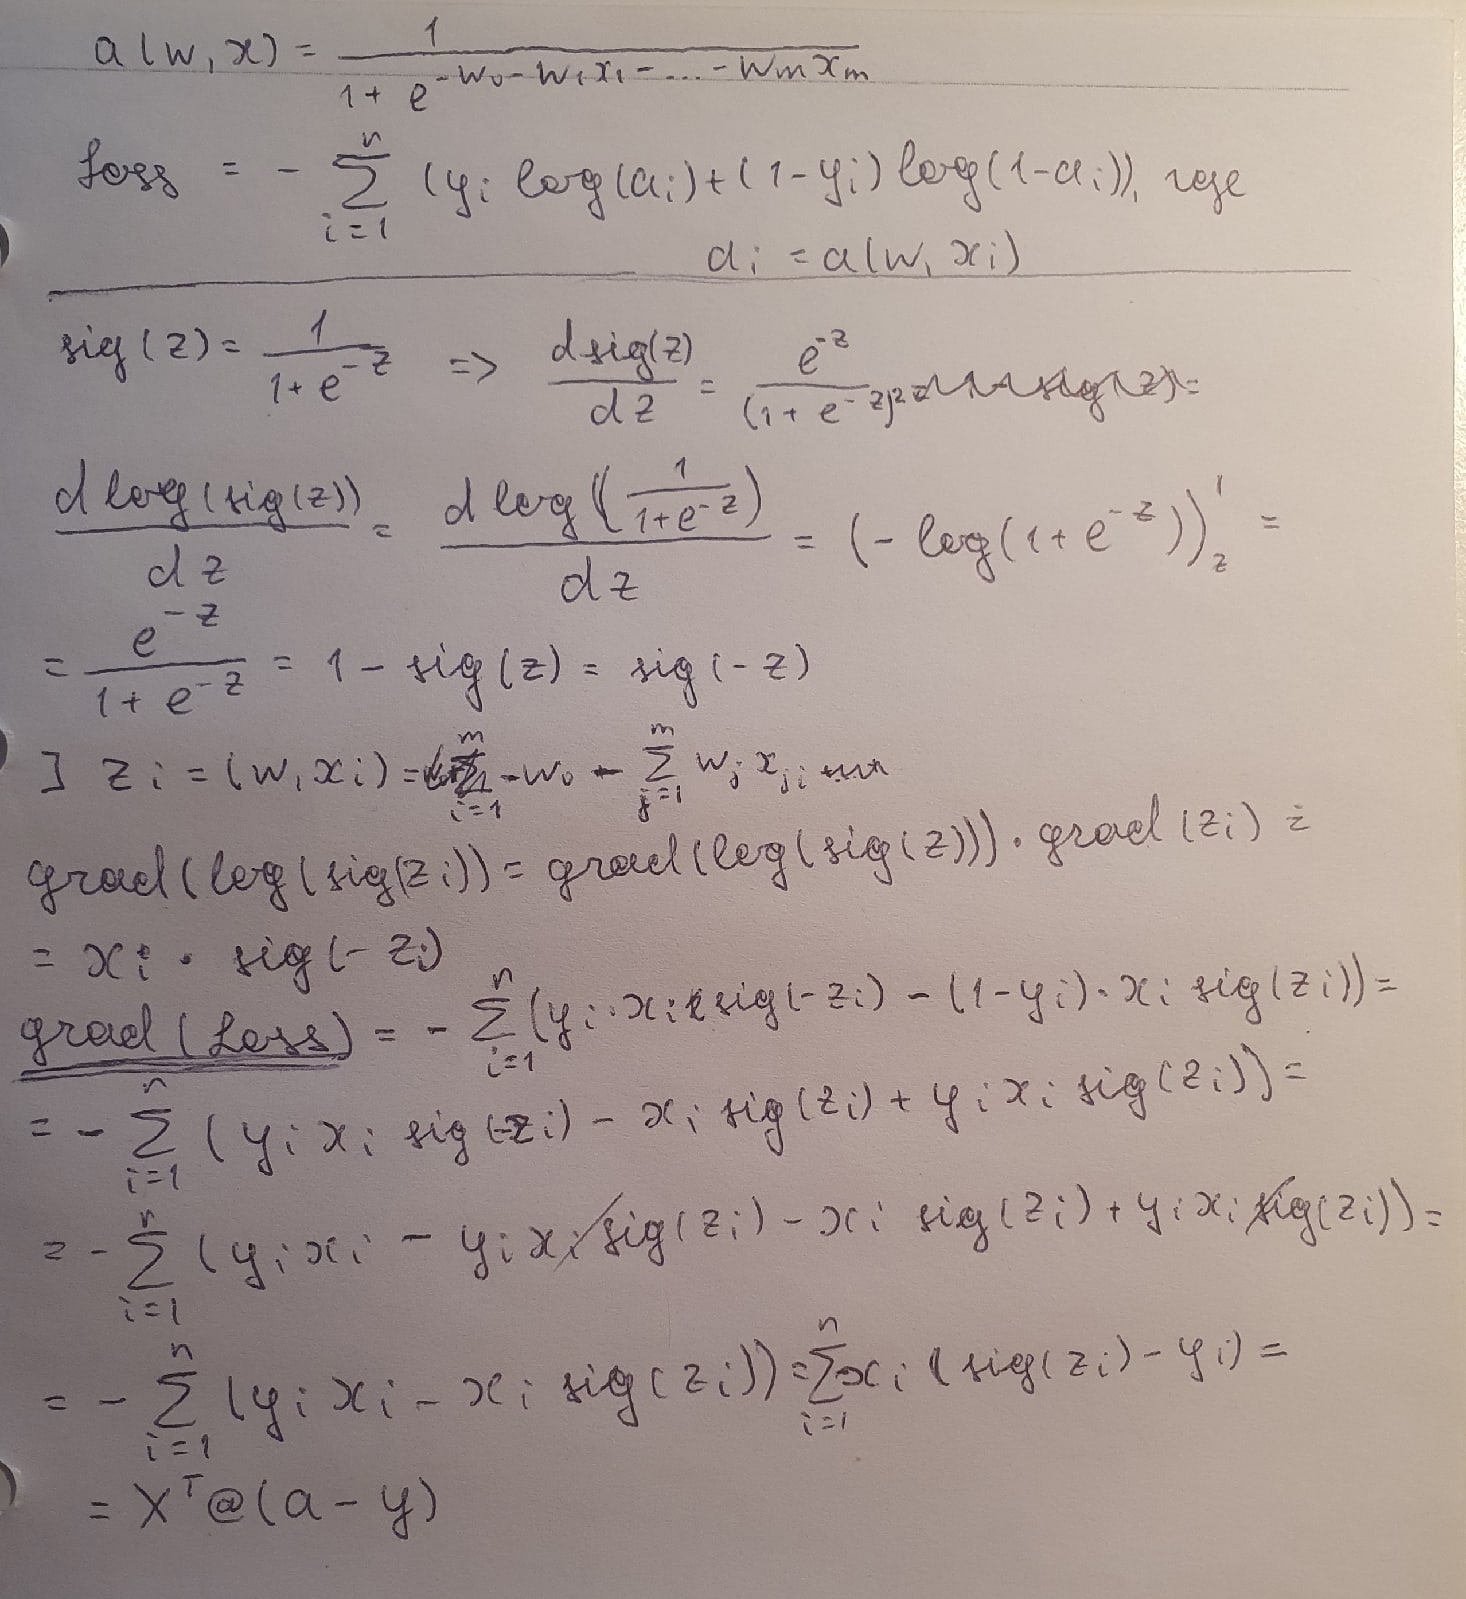 a(w, x) = 1 / (1 + e^(-w₀ - w₁x₁ - ... - wₘxₘ))
Loss = - Σ_{i=1}^{n} (yᵢ log(aᵢ) + (1-yᵢ) log(1-aᵢ)), где
aᵢ = a(w, xᵢ)
sig(z) = 1 / (1 + e^(-z)) => d sig(z) / dz = e^(-z) / (1 + e^(-z))² =
d log(sig(z)) / dz = d log((1 / (1+e^(-z))) / dz = (- log(1 + e^(-z)))'_z =
= e^(-z) / (1 + e^(-z)) = 1 - sig(z) = sig(-z)
] zᵢ = (w, xᵢ) = -w₀ - Σ_{j=1}^{m} wⱼ xⱼᵢ
grad(log(sig(zᵢ)) = grad(log(sig(z))) · grad(zᵢ) =
= xᵢ · sig(-zᵢ)
grad(Loss) = - Σ_{i=1}^{n} (yᵢ · xᵢ sig(-zᵢ) - (1-yᵢ) · xᵢ sig(zᵢ)) =
= - Σ_{i=1}^{n} (yᵢ xᵢ sig(-zᵢ) - xᵢ sig(zᵢ) + yᵢ xᵢ sig(zᵢ)) =
= - Σ_{i=1}^{n} (yᵢ xᵢ - yᵢ xᵢ sig(zᵢ) - xᵢ sig(zᵢ) + yᵢ xᵢ sig(zᵢ)) =
= - Σ_{i=1}^{n} (yᵢ xᵢ - xᵢ sig(zᵢ)) = Σ_{i=1}^{n} xᵢ (sig(zᵢ) - yᵢ) =
= Xᵀ@(a - y)